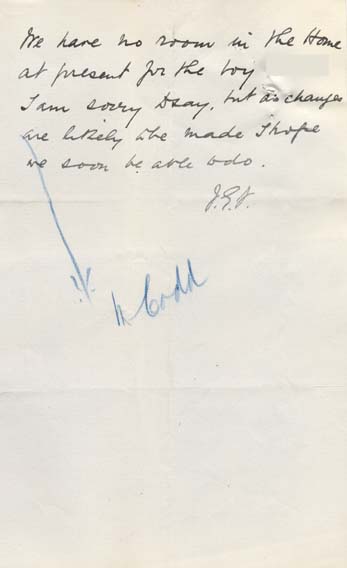 We have no room in the Home
at present for the boy
I am sorry to say, but as changes
are likely to be made I hope
we soon be able to do.
J.E.J.
Mr Codd